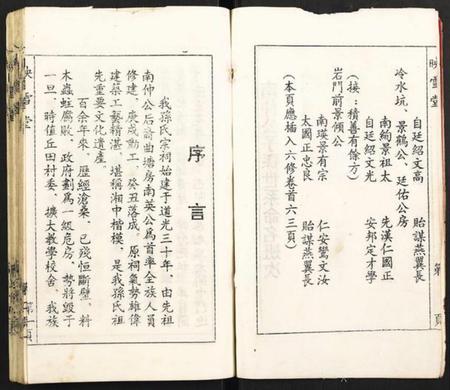 映雪堂
自廷紹文高 貽謀燕翼長
冷水坑、景鶴公、廷佑公房
南絢景祖太 先漢仁國正
自廷紹文光 安邦定才學
(接：積善有餘方)
岩門前景傾公
南瑛景有宗 仁安鸞文汝
太國正忠良 貽謀燕翼長
(本頁應插入六修卷首六三頁)
序言
我孫氏宗祠始建于道光三十年，由先祖
南仲公后裔曲塘房南英公為首率全族人員
修建，庚戌動工，癸丑落成。原祠氣勢雄偉
建築工藝精湛，堪稱湘中楷模，是我孫氏祖
先重要文化遺產。
百余年來，歷經滄桑，已殘恒斷壁，料
木蟲蛀腐敗，政府劃為一級危房，勢將毀于
一旦，時值丘田村委，擴大教學校舍，我族
映雪堂